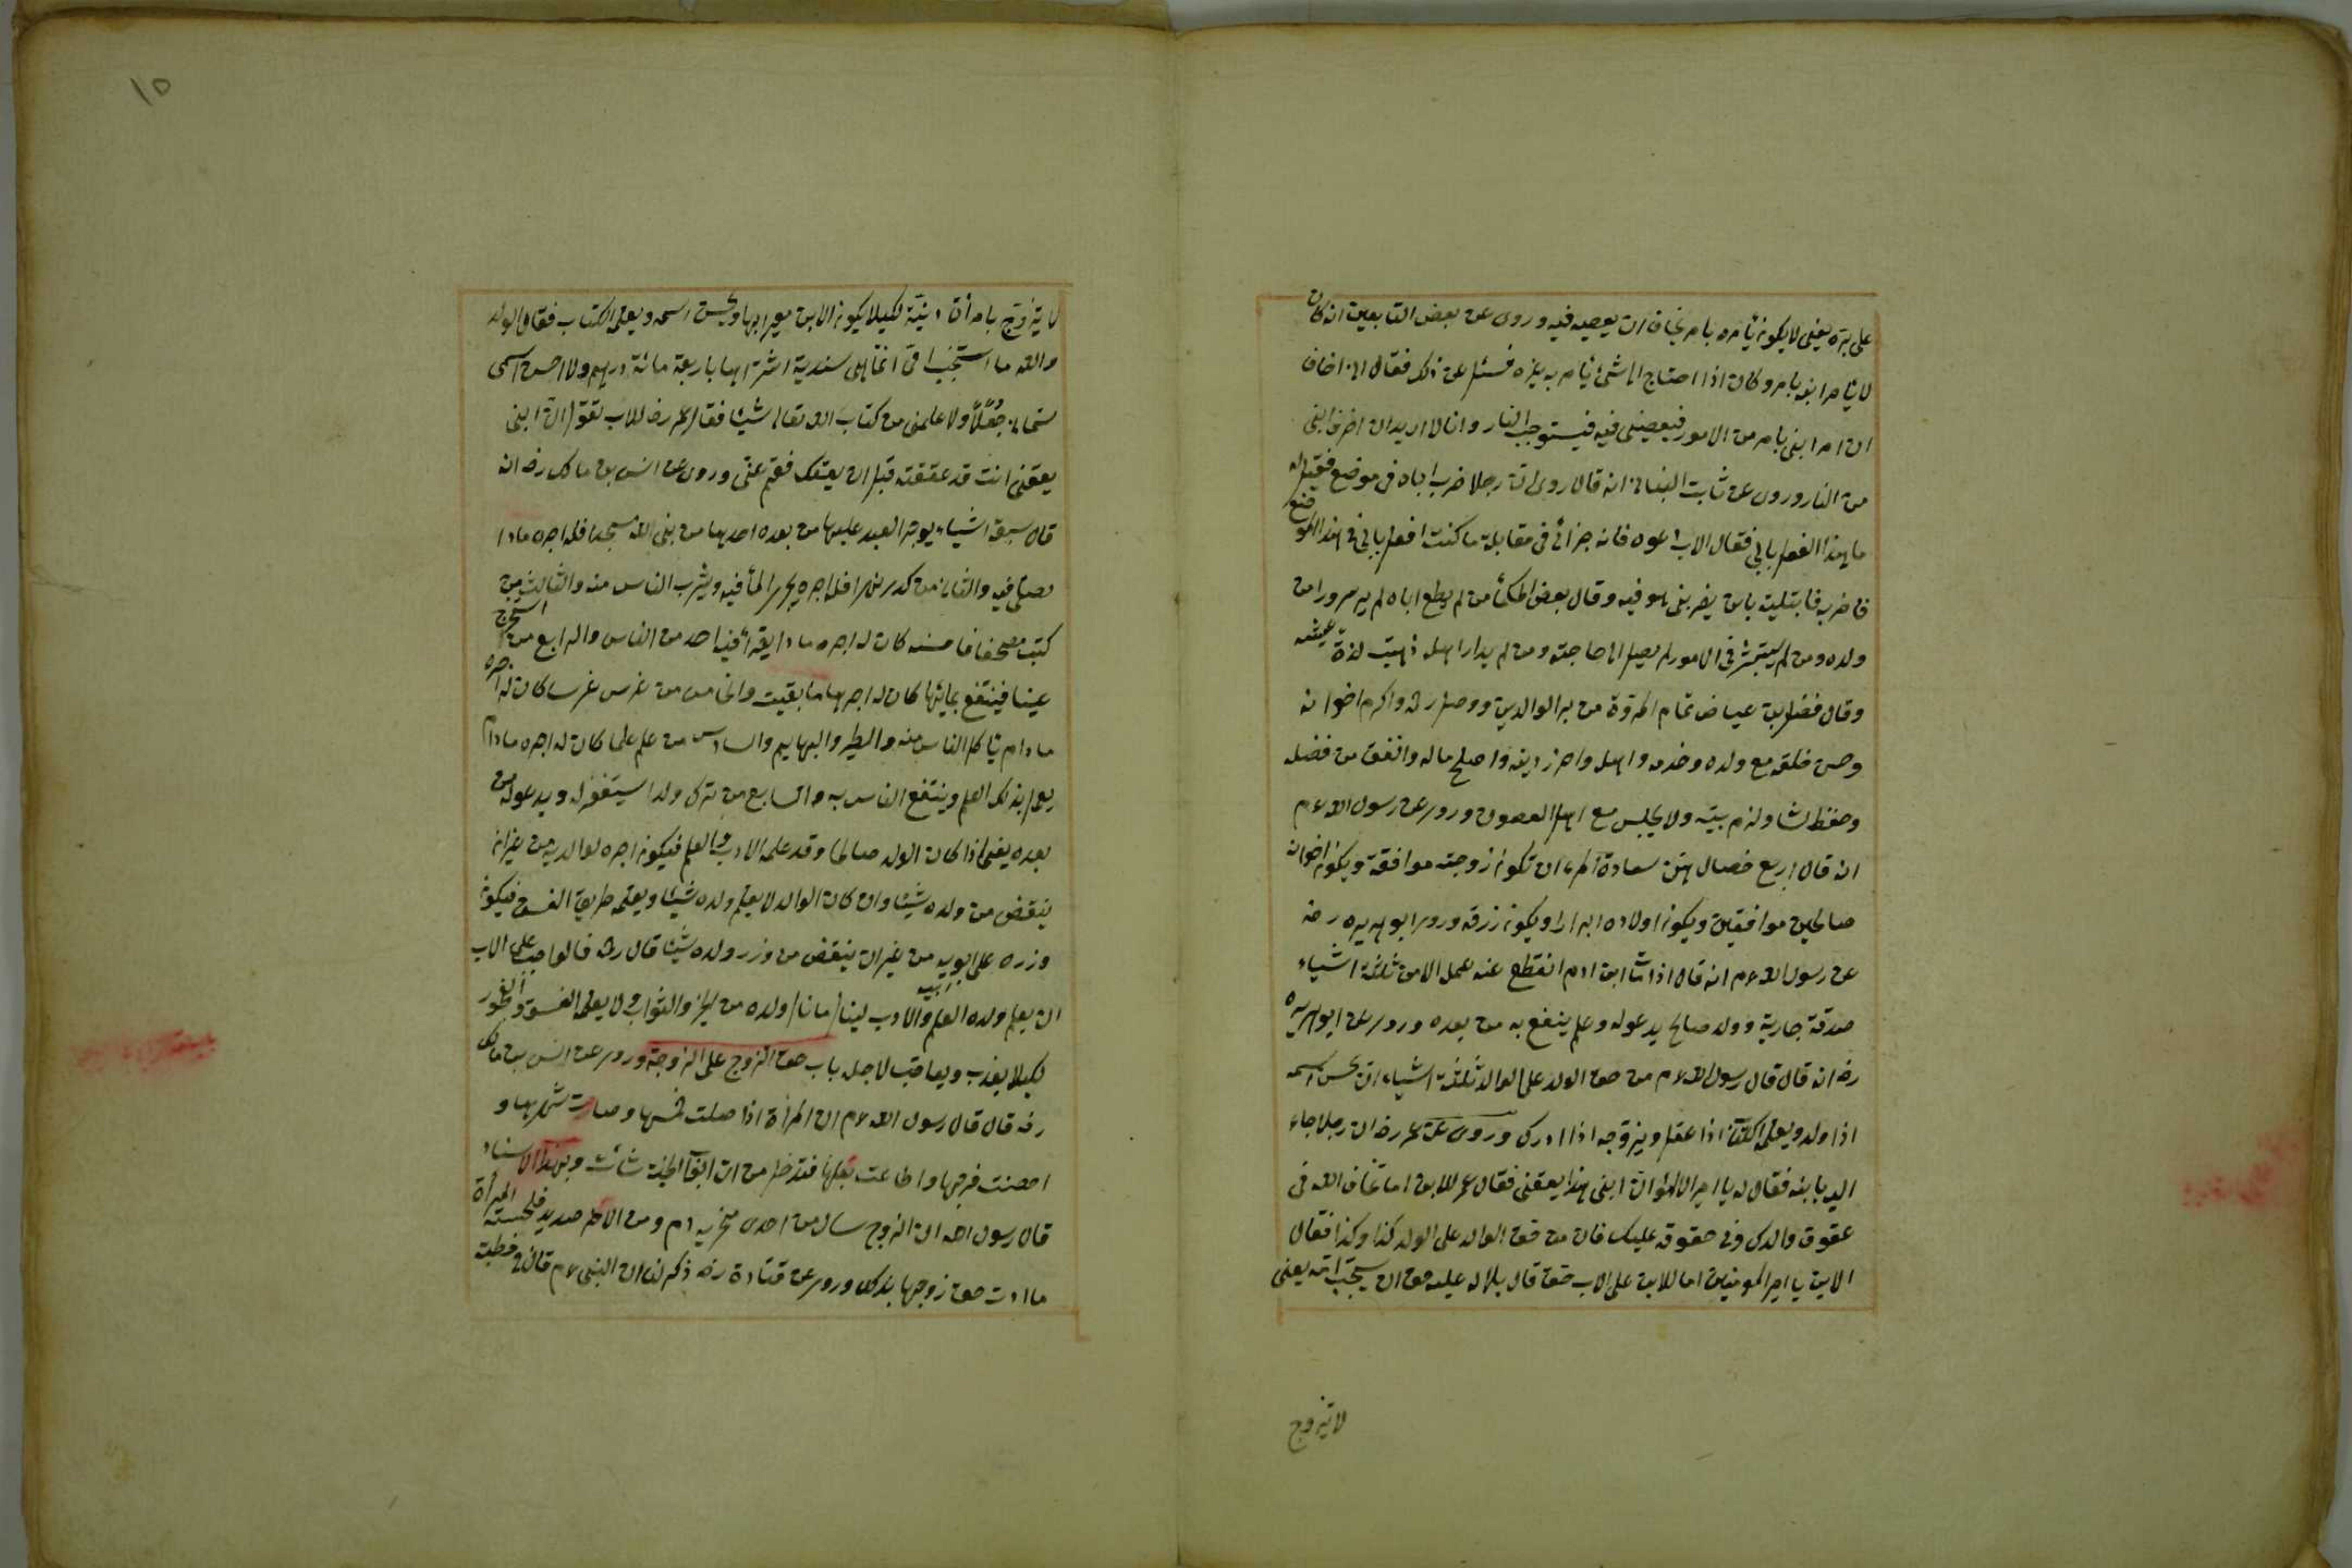 على بره يعنى لا يكون يأمره بامر يخاف ان يعصيه فيه وروى عن بعض التابعين انه كان
لا يأمر ابنه بامر وكان اذا احتاج الى شئ يأمر به غيره فسئل عن ذلك فقال انى اخاف
ان امر ابنى بامر من الامور فيعصينى فيه فيستوجب النار وانا لا اريد ان احرق ابنى
من النار وروى عن ثابت البنانى انه قال روى ان رجلا ضرب اباه فى موضع فقيل له
ما هذا الفعل بابى فقال الاب دعوه فانه جزائى فى مقابلة ما كنت افعل بابى فى هذا الموضع
فاضربه فابتليت بابن يضربنى هو فيه وقال بعض الحكماء من لم يطع اباه لم ير سرورا من
ولده ومن لم يستشر فى الامور لم يصل الى حاجته ومن لم يدار اهله ذهبت لذة عيشه
وقال فضيل بن عياض تمام المروة من بر الوالدين ووصل رحمه واكرم اخوانه
وحسن خلقه مع ولده وخدمه واهله واحرز دينه واصلح ماله وانفق من فضله
وحفظ لسانه ولزم بيته ولا يجلس مع اهل الفضول وروى عن رسول الله عم
انه قال اربع خصال من سعادة المرء ان تكون زوجته موافقة ويكون اخوانه
صالحين موافقين ويكون اولاده ابرارا ويكون رزقه وروى ابو هريره رضه
عن رسول الله عم انه قال اذا مات ابن ادم انقطع عنه عمله الا من ثلثة اشياء
صدقة جارية وولد صالح يدعوله وعلم ينفع به من بعده وروى عن ابو هريره
رضه انه قال قال رسول الله عم من حق الولد على الوالد ثلثة اشياء ان يحسن اسمه
اذا ولد ويعلمه الكتاب اذا عقل ويزوجه اذا ادرك وروى عن عمر رضه ان رجلا جاء
اليه بابنه فقال له يا امير المؤمنين ان ابنى هذا يعقنى فقال عمر للابن اما تخاف الله فى
عقوق والدك وفى حقوقه عليك فان من حق الوالد على الولد كذا وكذا فقال
الابن يا امير المومنين اما للابن على الاب حق قال بلى له عليه حق ان يستنجب امه يعنى
لا يتزوج
لا يتزوج بامرأة دنيّة لكيلا يكون الابن معيرا بها ويحسن اسمه ويعلمه الكتاب فقال الولد
والله ما استنجب امى انما هى سندية اشترٮها باربعة مائة درهم ولا احسن اسمى
سمانى جُعَلًا ولا علمنى من كتاب الله تعالى شيئا فقال عمر رضه للاب تقول ان ابنى
يعقنى انت قد عققته قبل ان يعقك فقم عنى وروى عن انس بن مالك رضه انه
قال سبعة اشياء يوجر العبد عليها من بعده احدها من بنى لله مسجدا فله اجره مادام
يصلى فيه والثانى من كدر نهرا فله اجره يجرى الماء فيه ويشرب الناس منه والثالث من
كتب مصحفا فاحسنه كان له اجره مادام يقرأ فيه احد من الناس والرابع من استخرج
عينا فينتفع بمائها كان له اجرها ما بقيت والخامس من غرس غرسا كان له اجره
مادام يأكل الناس منه والطير والبهايم والسادس من علم علما كان له اجره مادام
يعمل بذلك العلم وينتفع الناس به والسابع من ترك ولدا يستغفر له ويدعوله من
بعده يعنى اذا كان الولد صالحا وقد علمه الادب والعلم فيكون اجره لوالديه من غير ان
ينقص من ولده شيئا وان كان الوالد لا يعلم ولده شيئا ويعلمه طريق الفسق فيكون
وزره على ابويه من غير ان ينقص من وزر ولده شيئا قال رضه فالواجب على الاب
ان يعلم ولده العلم والادب لينال ما نال ولده من الخير والثواب ولا يعلمه الفسق والفجور
لكيلا يعذب ويعاقب لاجله باب حق الزوج على الزوجة وروى عن انس بن مالك
رضه قال قال رسول الله عم ان المرأة اذا صلت خمسها وصامت شهرها و
احصنت فرجها واطاعت بعلها فتدخل من اى ابواب الجنة شائت وبهذا الاسناد
قال رسول الله ان الزوج سال من احدى منخريه دم ومن الاخر صديد فلحسته المرأة
ما ادت حق زوجها بذلك وروى عن قتادة رضه ذكر لنا ان النبى عم قال فى خطبته
١٥